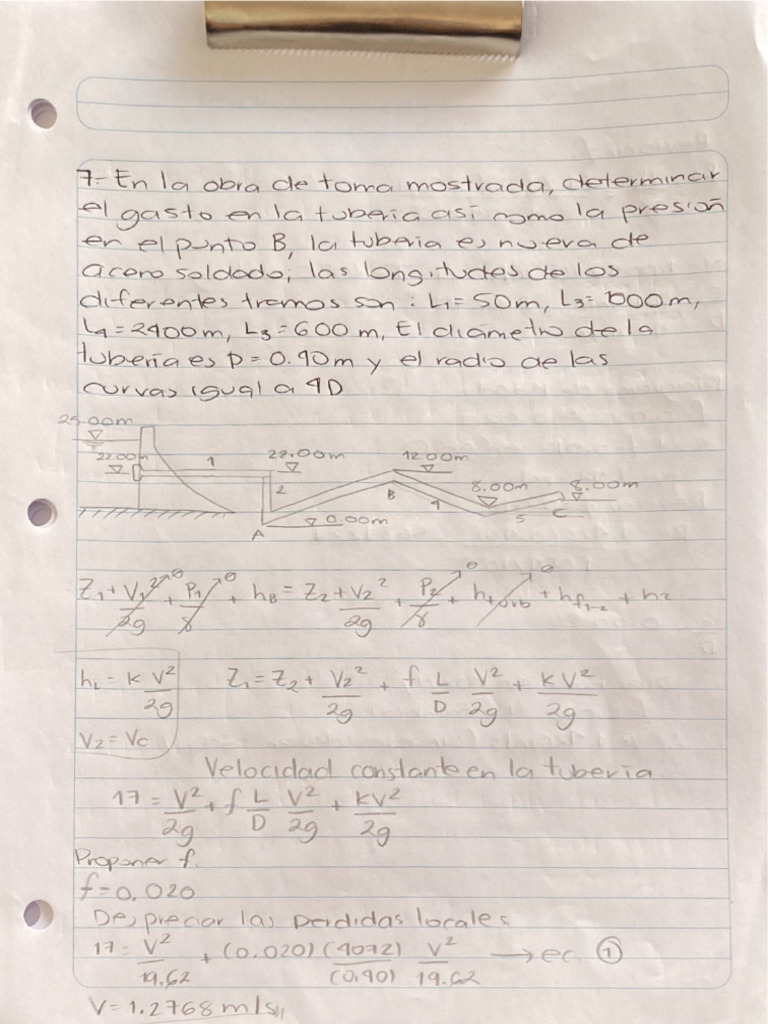 7.- En la obra de toma mostrada, determinar
el gasto en la tuberia así como la presión
en el punto B, la tuberia es nueva de
acero soldado; las longitudes de los
diferentes tramos son: L1 = 50m, L3 = 1000m,
L4 = 2400m, L3 = 600 m, El diámetro de la
tuberia es D = 0.40m y el radio de las
curvas igual a 4D
25.00m
22.00m 1 22.00m 12.00m
2 B 4 8.00m 8.00m
A 0.00m 5 C
Z1 + V1²/2g + P1/γ + hB = Z2 + V2²/2g + P2/γ + hturb + hf1-2 + hL
0 0 0 0
hL = K V²/2g Z1 = Z2 + V2²/2g + f L/D V²/2g + KV²/2g
V2 = Vc
Velocidad constante en la tuberia.
17 = V²/2g + f L/D V²/2g + KV²/2g
Proponer f.
f = 0,020
Despreciar las perdidas locales
17 = V²/19.62 + (0.020) (4072)/(0.40) V²/19.62 → ec ①
V = 1.2768 m/s//